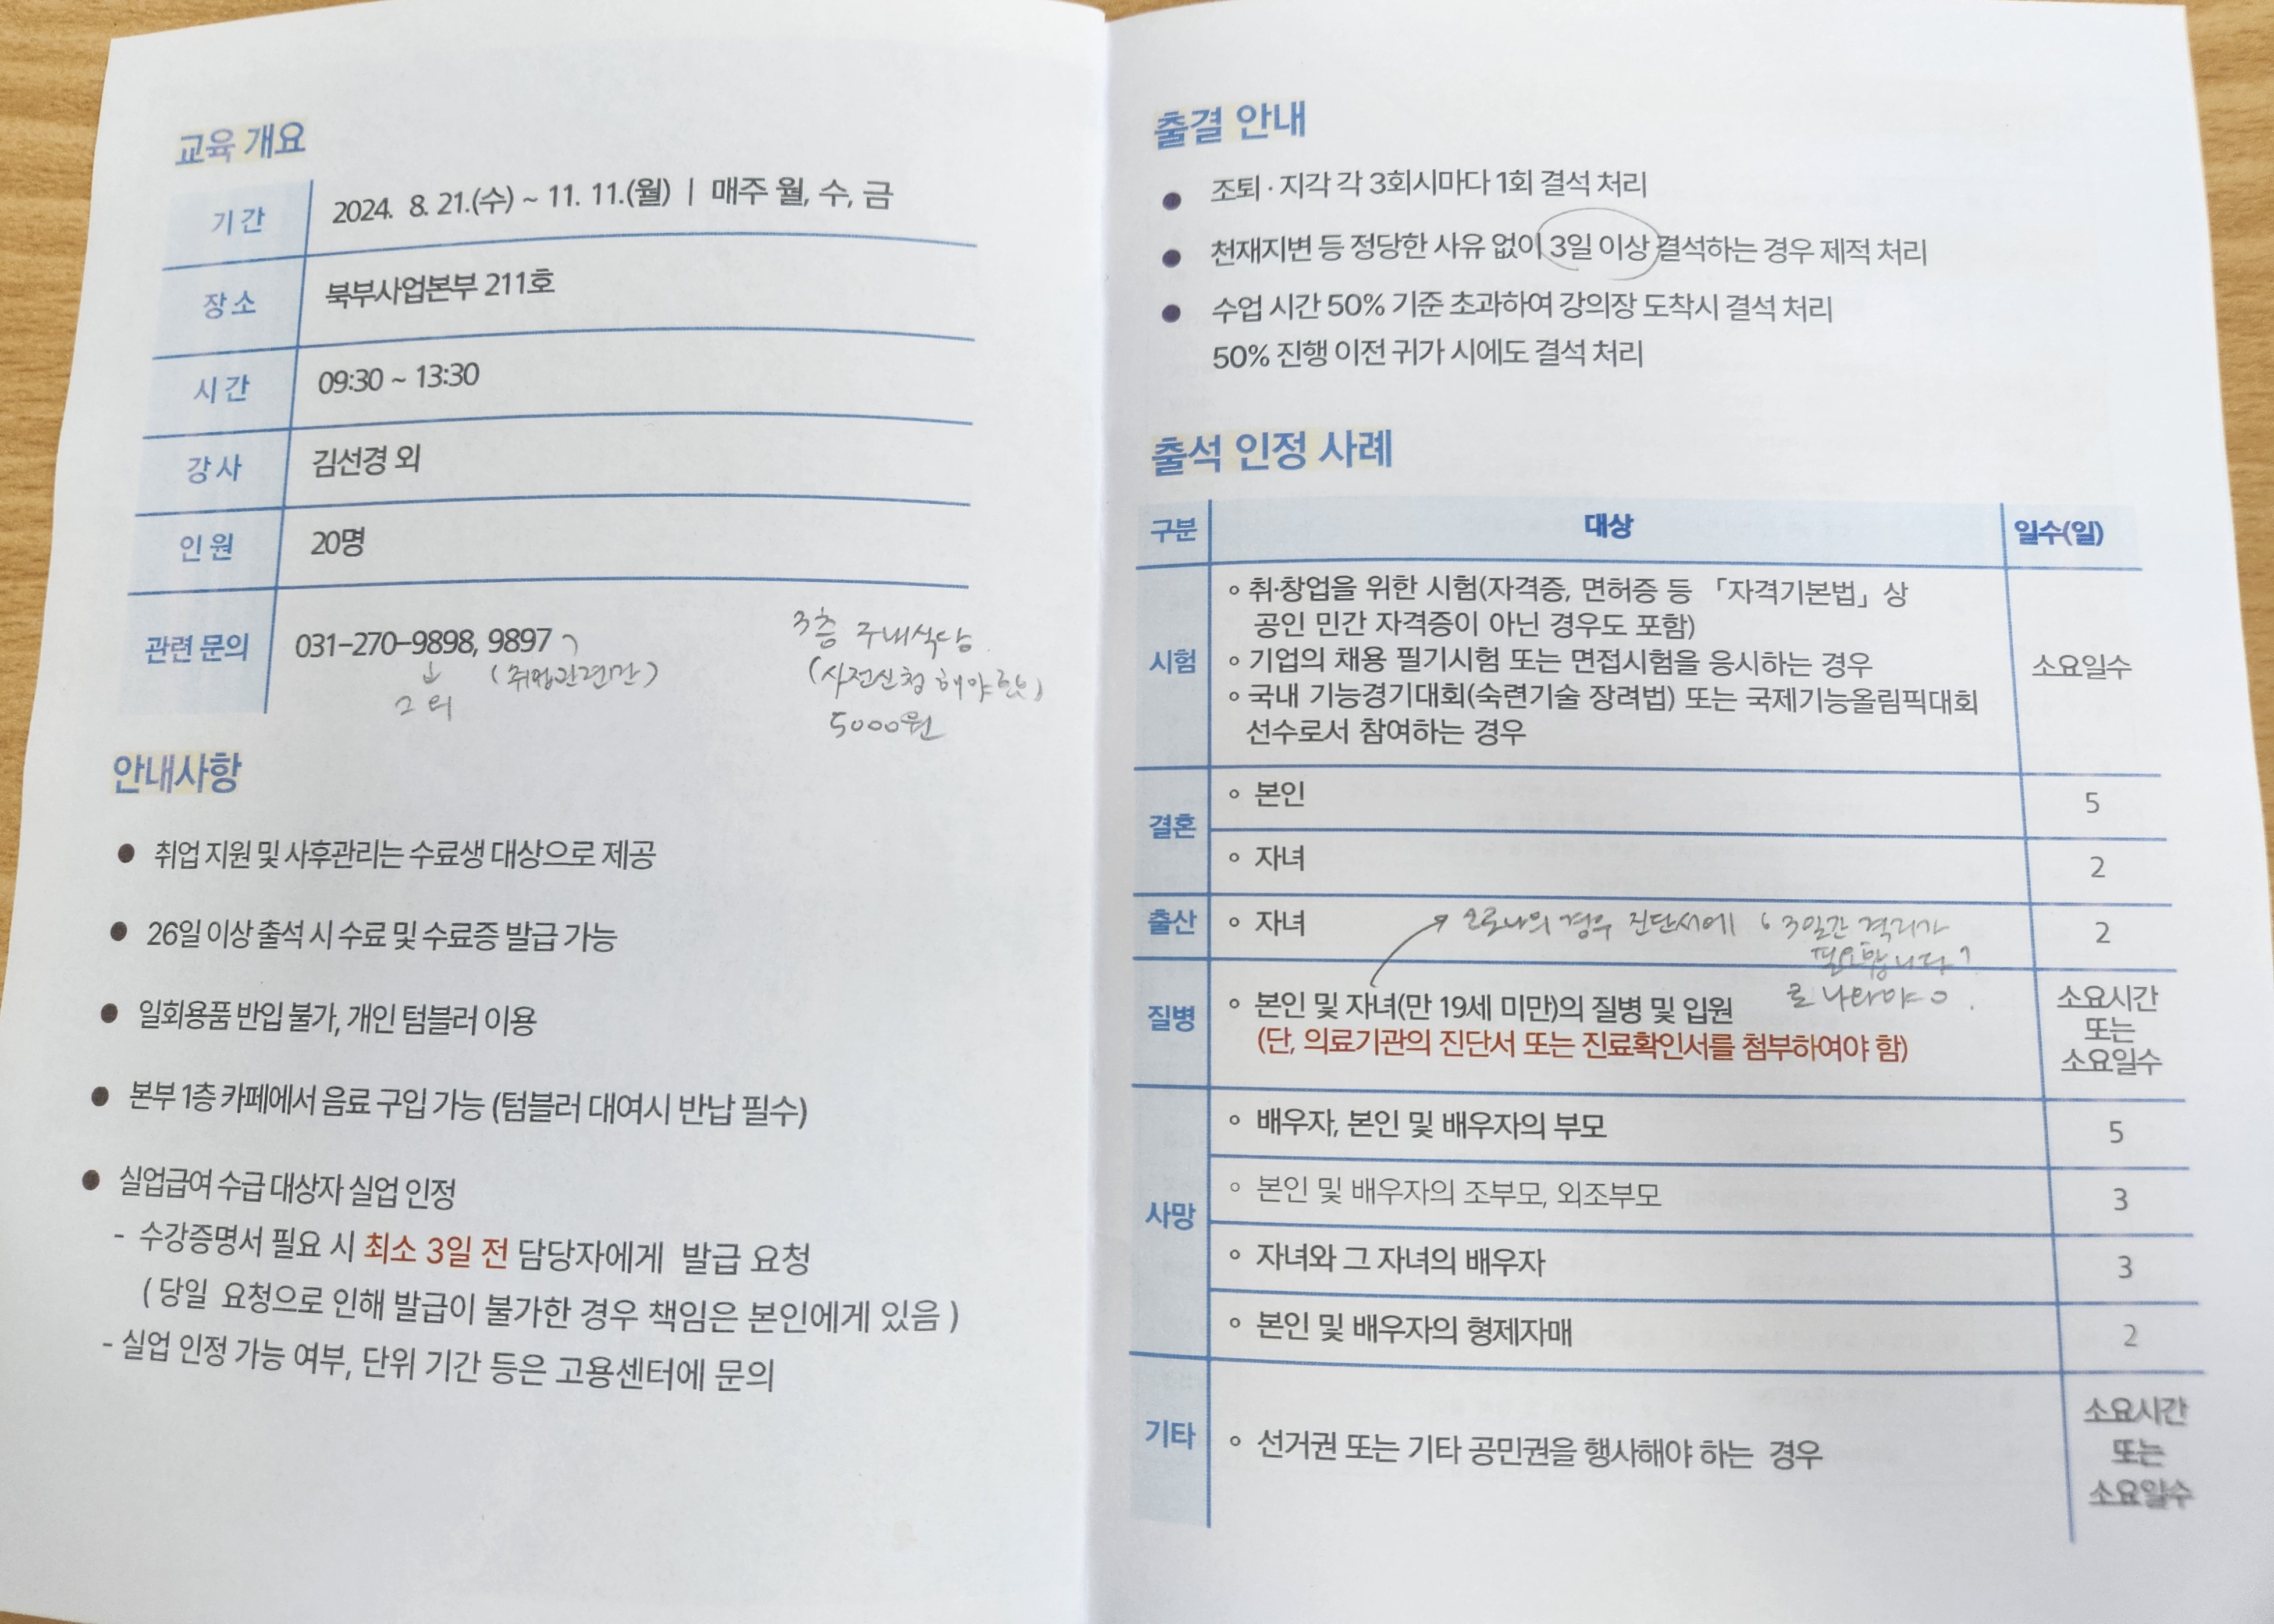 교육 개요
기 간 2024. 8. 21.(수) ~ 11. 11.(월) | 매주 월, 수, 금
장 소 북부사업본부 211호
시 간 09:30 ~ 13:30
강 사 김선경 외
인 원 20명
관련 문의 031-270-9898, 9897
↓ (취업관련만)
그 외
3층 구내식당
(사전신청 해야 함)
5000원
안내사항
● 취업 지원 및 사후관리는 수료생 대상으로 제공
● 26일 이상 출석 시 수료 및 수료증 발급 가능
● 일회용품 반입 불가, 개인 텀블러 이용
● 본부 1층 카페에서 음료 구입 가능 (텀블러 대여시 반납 필수)
● 실업급여 수급 대상자 실업 인정
- 수강증명서 필요 시 최소 3일 전 담당자에게 발급 요청
( 당일 요청으로 인해 발급이 불가한 경우 책임은 본인에게 있음 )
- 실업 인정 가능 여부, 단위 기간 등은 고용센터에 문의
출결 안내
● 조퇴 · 지각 각 3회시마다 1회 결석 처리
● 천재지변 등 정당한 사유 없이 3일 이상 결석하는 경우 제적 처리
● 수업 시간 50% 기준 초과하여 강의장 도착시 결석 처리
50% 진행 이전 귀가 시에도 결석 처리
출석 인정 사례
구분 대상 일수(일)
시험
∘ 취·창업을 위한 시험(자격증, 면허증 등 「자격기본법」 상
공인 민간 자격증이 아닌 경우도 포함)
∘ 기업의 채용 필기시험 또는 면접시험을 응시하는 경우
∘ 국내 기능경기대회(숙련기술 장려법) 또는 국제기능올림픽대회
선수로서 참여하는 경우
소요일수
결혼 ∘ 본인 5
∘ 자녀 2
출산 ∘ 자녀 2
코로나의 경우 진단서에 '3일간 격리가
필요합니다'
로 나와야 ○.
질병 ∘ 본인 및 자녀(만 19세 미만)의 질병 및 입원
(단, 의료기관의 진단서 또는 진료확인서를 첨부하여야 함)
소요시간
또는
소요일수
사망 ∘ 배우자, 본인 및 배우자의 부모 5
∘ 본인 및 배우자의 조부모, 외조부모 3
∘ 자녀와 그 자녀의 배우자 3
∘ 본인 및 배우자의 형제자매 2
기타 ∘ 선거권 또는 기타 공민권을 행사해야 하는 경우
소요시간
또는
소요일수